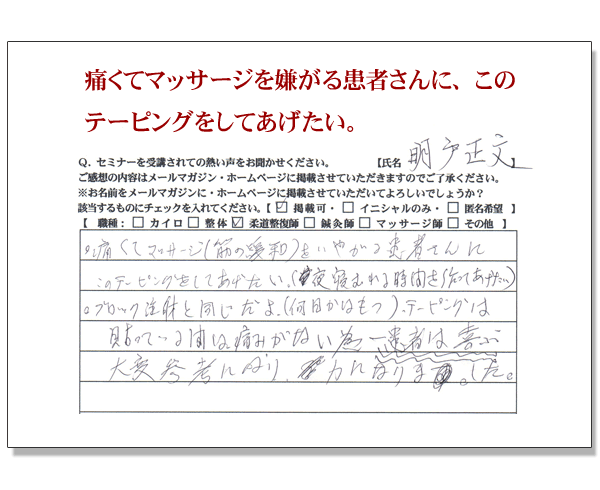 痛くてマッサージを嫌がる患者さんに、この
テーピングをしてあげたい。
Q. セミナーを受講されての熱い声をお聞かせください。 【氏名 明戸正文】
ご感想の内容はメールマガジン・ホームページに掲載させていただきますのでご了承ください。
※お名前をメールマガジンに・ホームページに掲載させていただいてよろしいでしょうか？
該当するものにチェックを入れてください。【 ☑ 掲載可・ □ イニシャルのみ・ □ 匿名希望 】
【 職種： □ カイロ □ 整体 ☑ 柔道整復師 □ 鍼灸師 □ マッサージ師 □ その他 】
○痛くてマッサージ(筋の緩和)をいやがる患者さんに
このテーピングをしてあげたい。(夜寝むれる時間を作ってあげたい)
○ブロック注射と同じだよ。(何日かはもつ)。テーピングは
貼っている間は痛みがない為 患者は喜ぶ
大変参考になり、力になりました。